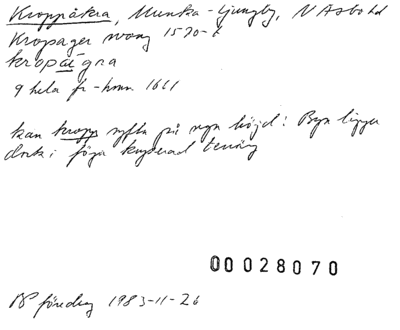 Kroppåkra, Munka-Ljungby, N Åsbo hd
Kropager wong 1570-t
kropåegra
9 hela fr-hmn 1661
kan kropp syfta på ngn höjd? Byn ligger
dock i föga kuperad terräng
00028070
föredrag 1983-11-26